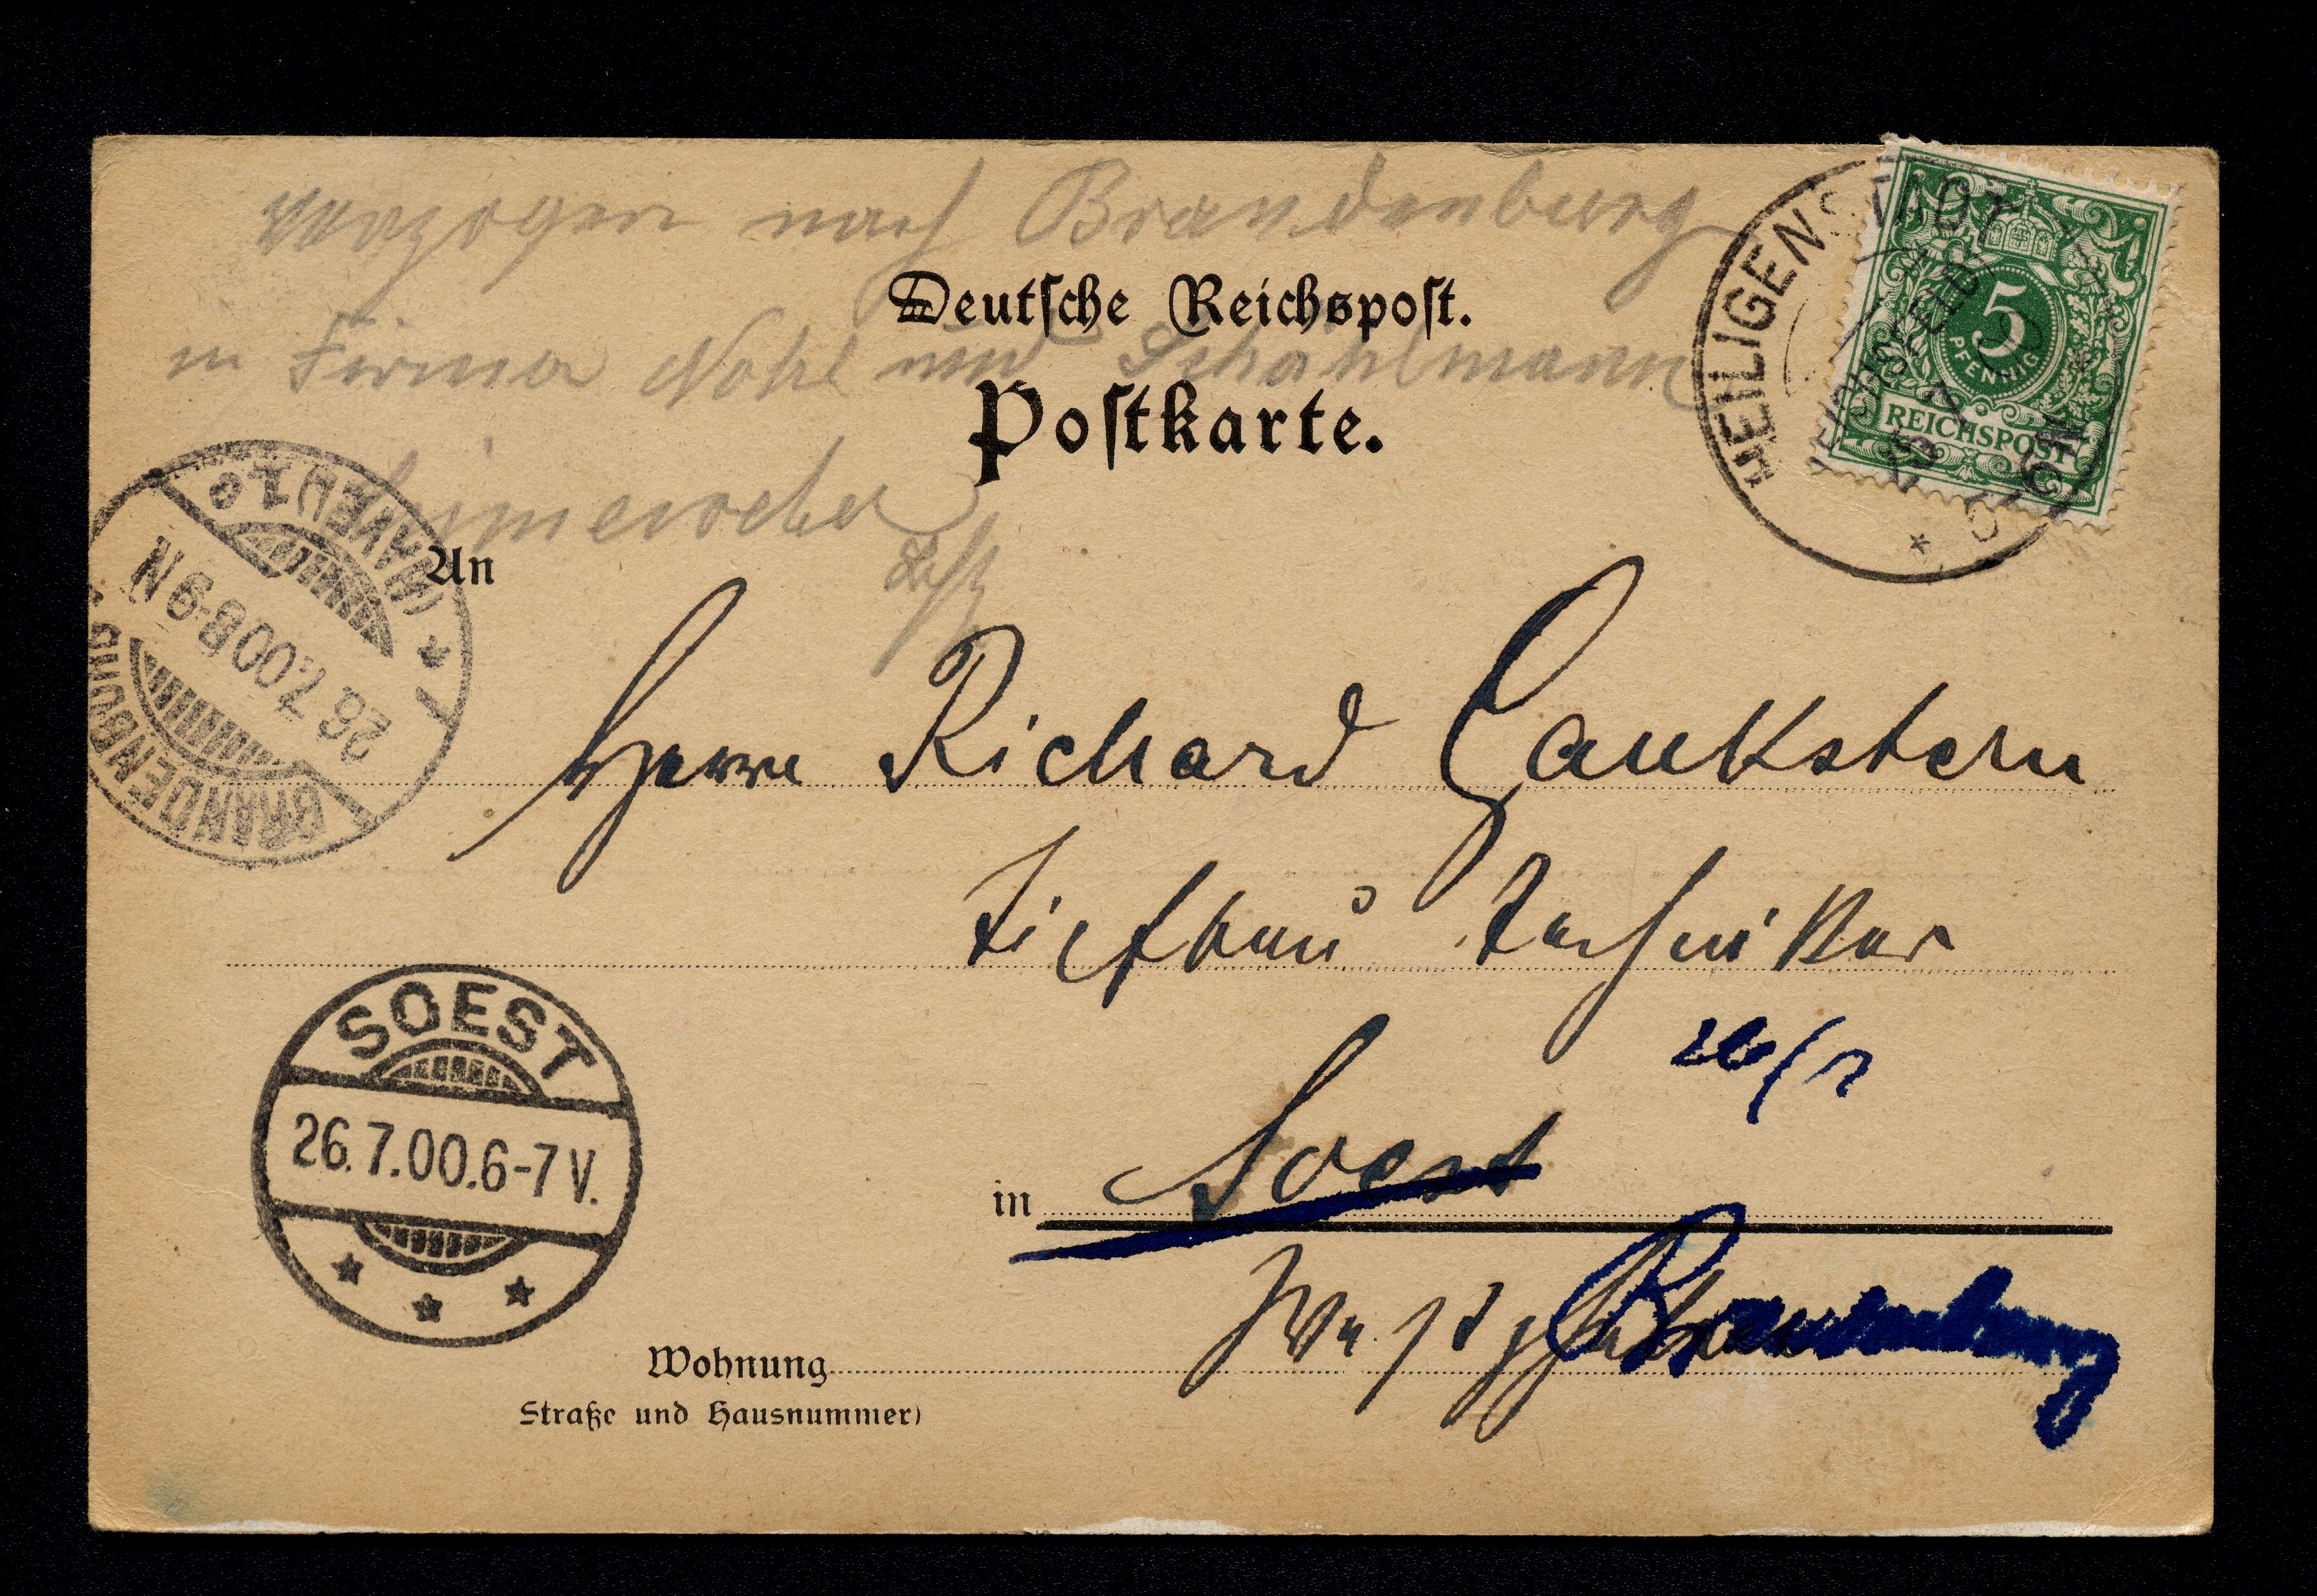 verzogen nach Brandenburg
Deutsche Reichspost.
in Firma und
Postkarte.
HEILIGENSTADT
(EICHSFELD)
5
PFENNIG
REICHSPOST
An
BRANDENBURG
(HAVEL) 1c
26.7.00.8-9N
Herrn Richard Gaukstern
Tiefbau Techniker
26/7
SOEST
26.7.00.6-7V.
in Soest
Westphalen
Brandenburg
Wohnung
Straße und Hausnummer)